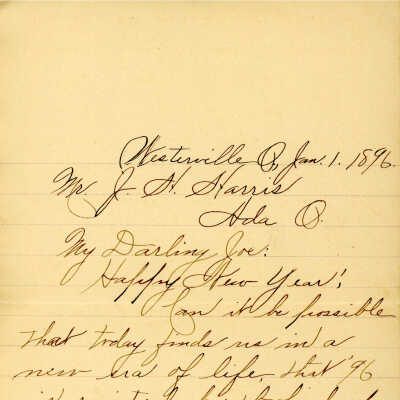 Westerville O, Jan. 1. 1896.
Mr. J. H. Harris
Ada O.
My Darling Joe:
Happy New Year!
Can it be possible
that today finds us in a
new era of life, that '96